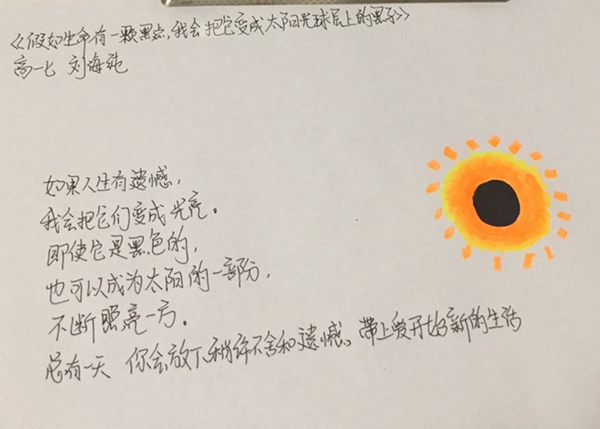 《假如生命有一颗黑点,我会把它变成太阳光球层上的黑子》
高一七 刘海莼
如果人生有遗憾,
我会把它们变成光亮。
即使它是黑色的,
也可以成为太阳的一部分,
不断照亮一方。
总有一天 你会放下稍许不舍和遗憾。带上爱开始新的生活